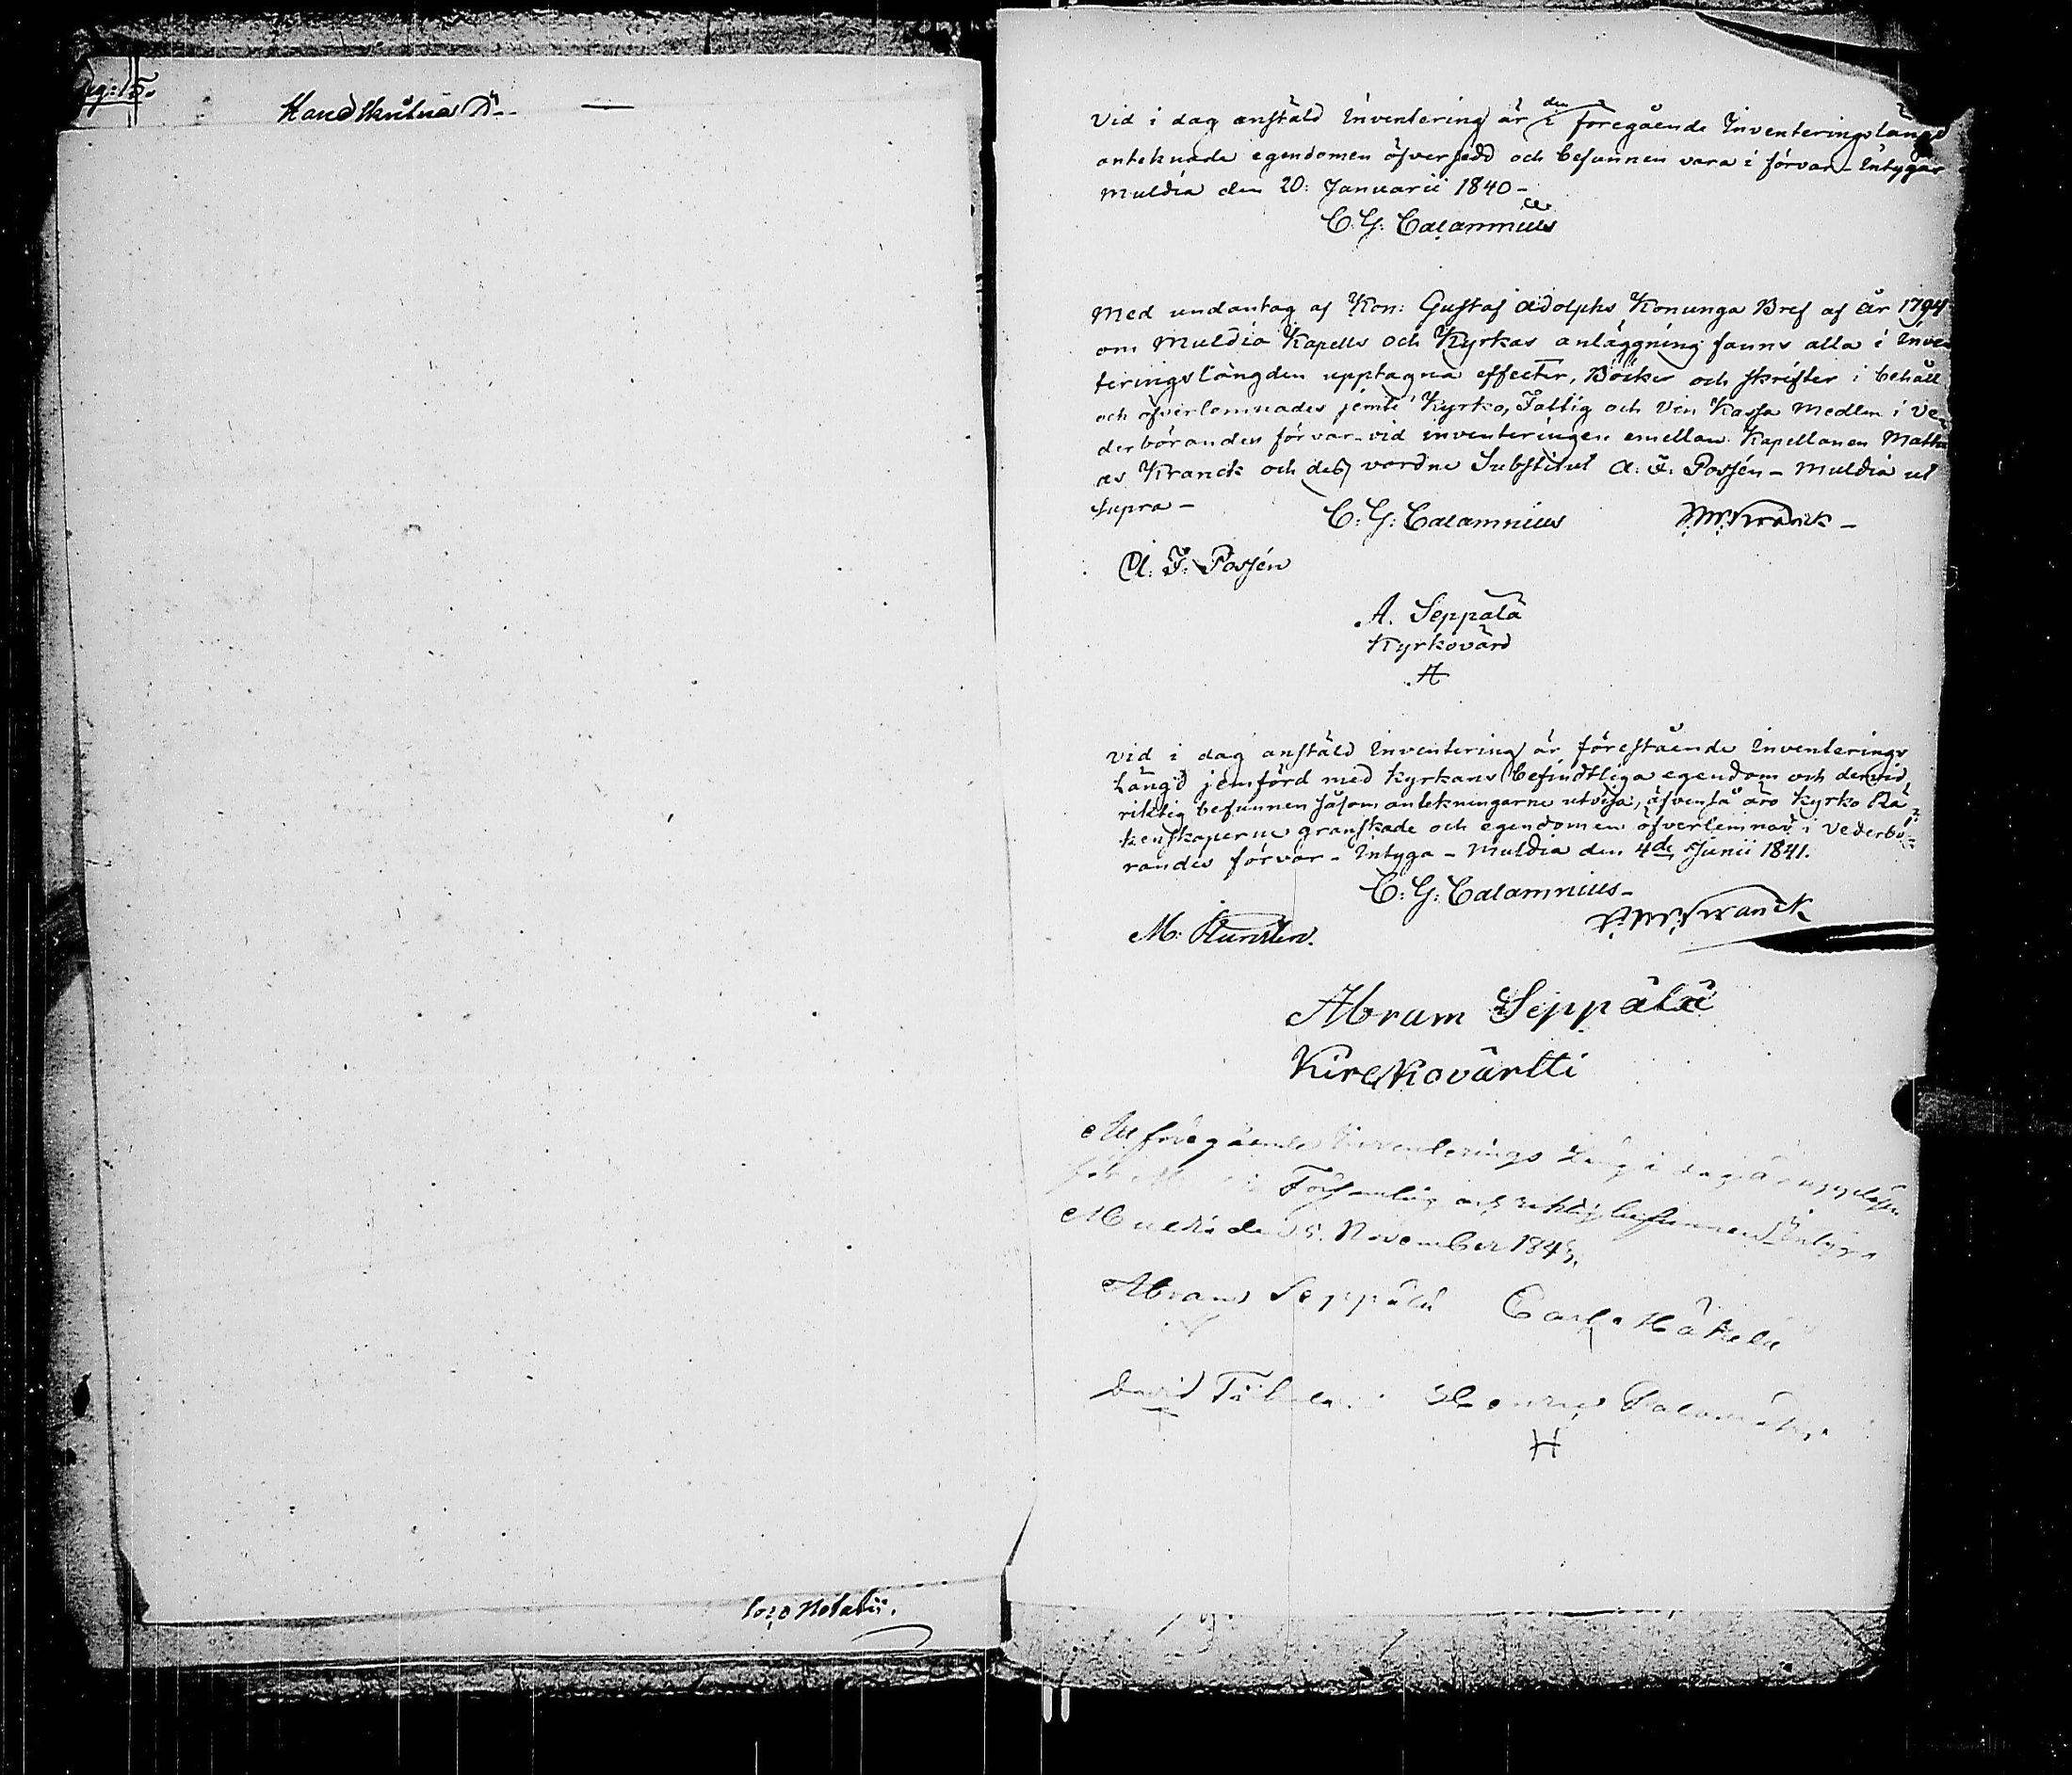 pag: 15.
Vid i dag anstäld Inventering är den i föregående Inventeringslängd
anteknade egendomen öfversedd och befunnen vara i förvar. Intygar
Muldia den 20: Januarii 1840 -
C. G: Calamnius
Med undantag af Kon: Gustaf Adolphs Konunga Bref af år 1794
om Muldia Kapells och Kyrkas anläggning fanns alla i Inven
teringslängden upptagna effecter, Böcker och skrifter i behåll
och öfverlemnades jemte Kyrko, Fattig och Vin Kassa Medlen i Ve-
derböranden förvar vid inventeringen emellan Kapellanen Matthi
as Kranck och dess vordne Substitut A: F: Possén - Muldia ut
supra -
C: G: Calamnius
M. Kranck -
A. F. Possén
A. Seppälä
Kyrkovärd
A
Vid i dag anstäld Inventering är förestående Inventerings
Längd jemförd med Kyrkans befindtliga egendom och dervid
riktig befunnen såsom antekningarne utvisa, äfvenså äro Kyrko Rä-
kenskaperne granskade och egendomen öfverlemnad i Vederbö-
randes förvar - Intyga - Muldia den 4de Junii 1841.
C: G: Calamnius -
Kranck
M:
Abram Seppälä
Kirckovärtti
föregående Inventerings Läng i dag
för Församling och riktig befunnen Intyga
Muldia de 5. November 184
Abram Seppälä Carl
David
H
Loco Notarii.